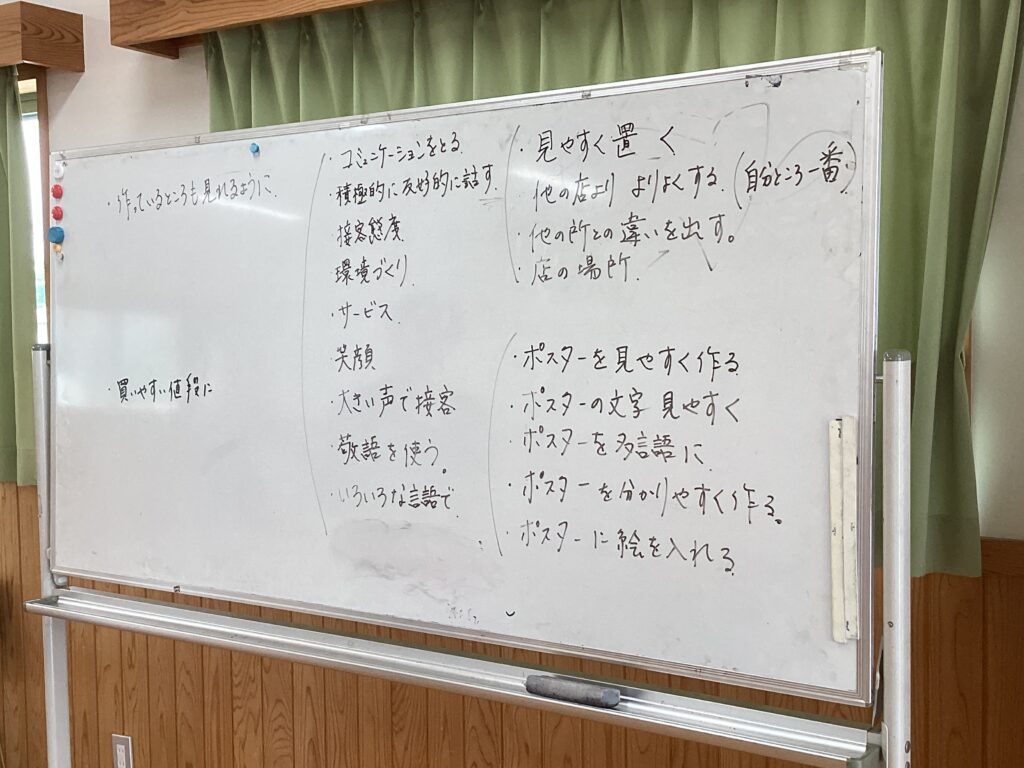 ・作っているところも見れるように
・買いやすい値段に
・コミュニケーションをとる。
積極的に友好的に話す。
・接客態度
環境づくり
・サービス
笑顔
・大きい声で接客
敬語を使う。
・いろいろな言語で
・見やすく置く
他の店より よりよくする。(自分ところ一番)
・他の所との違いを出す。
・店の場所
・ポスターを見やすく作る
・ポスターの文字 見やすく
・ポスターを多言語に
・ポスターを分かりやすく作る。
・ポスターに絵を入れる